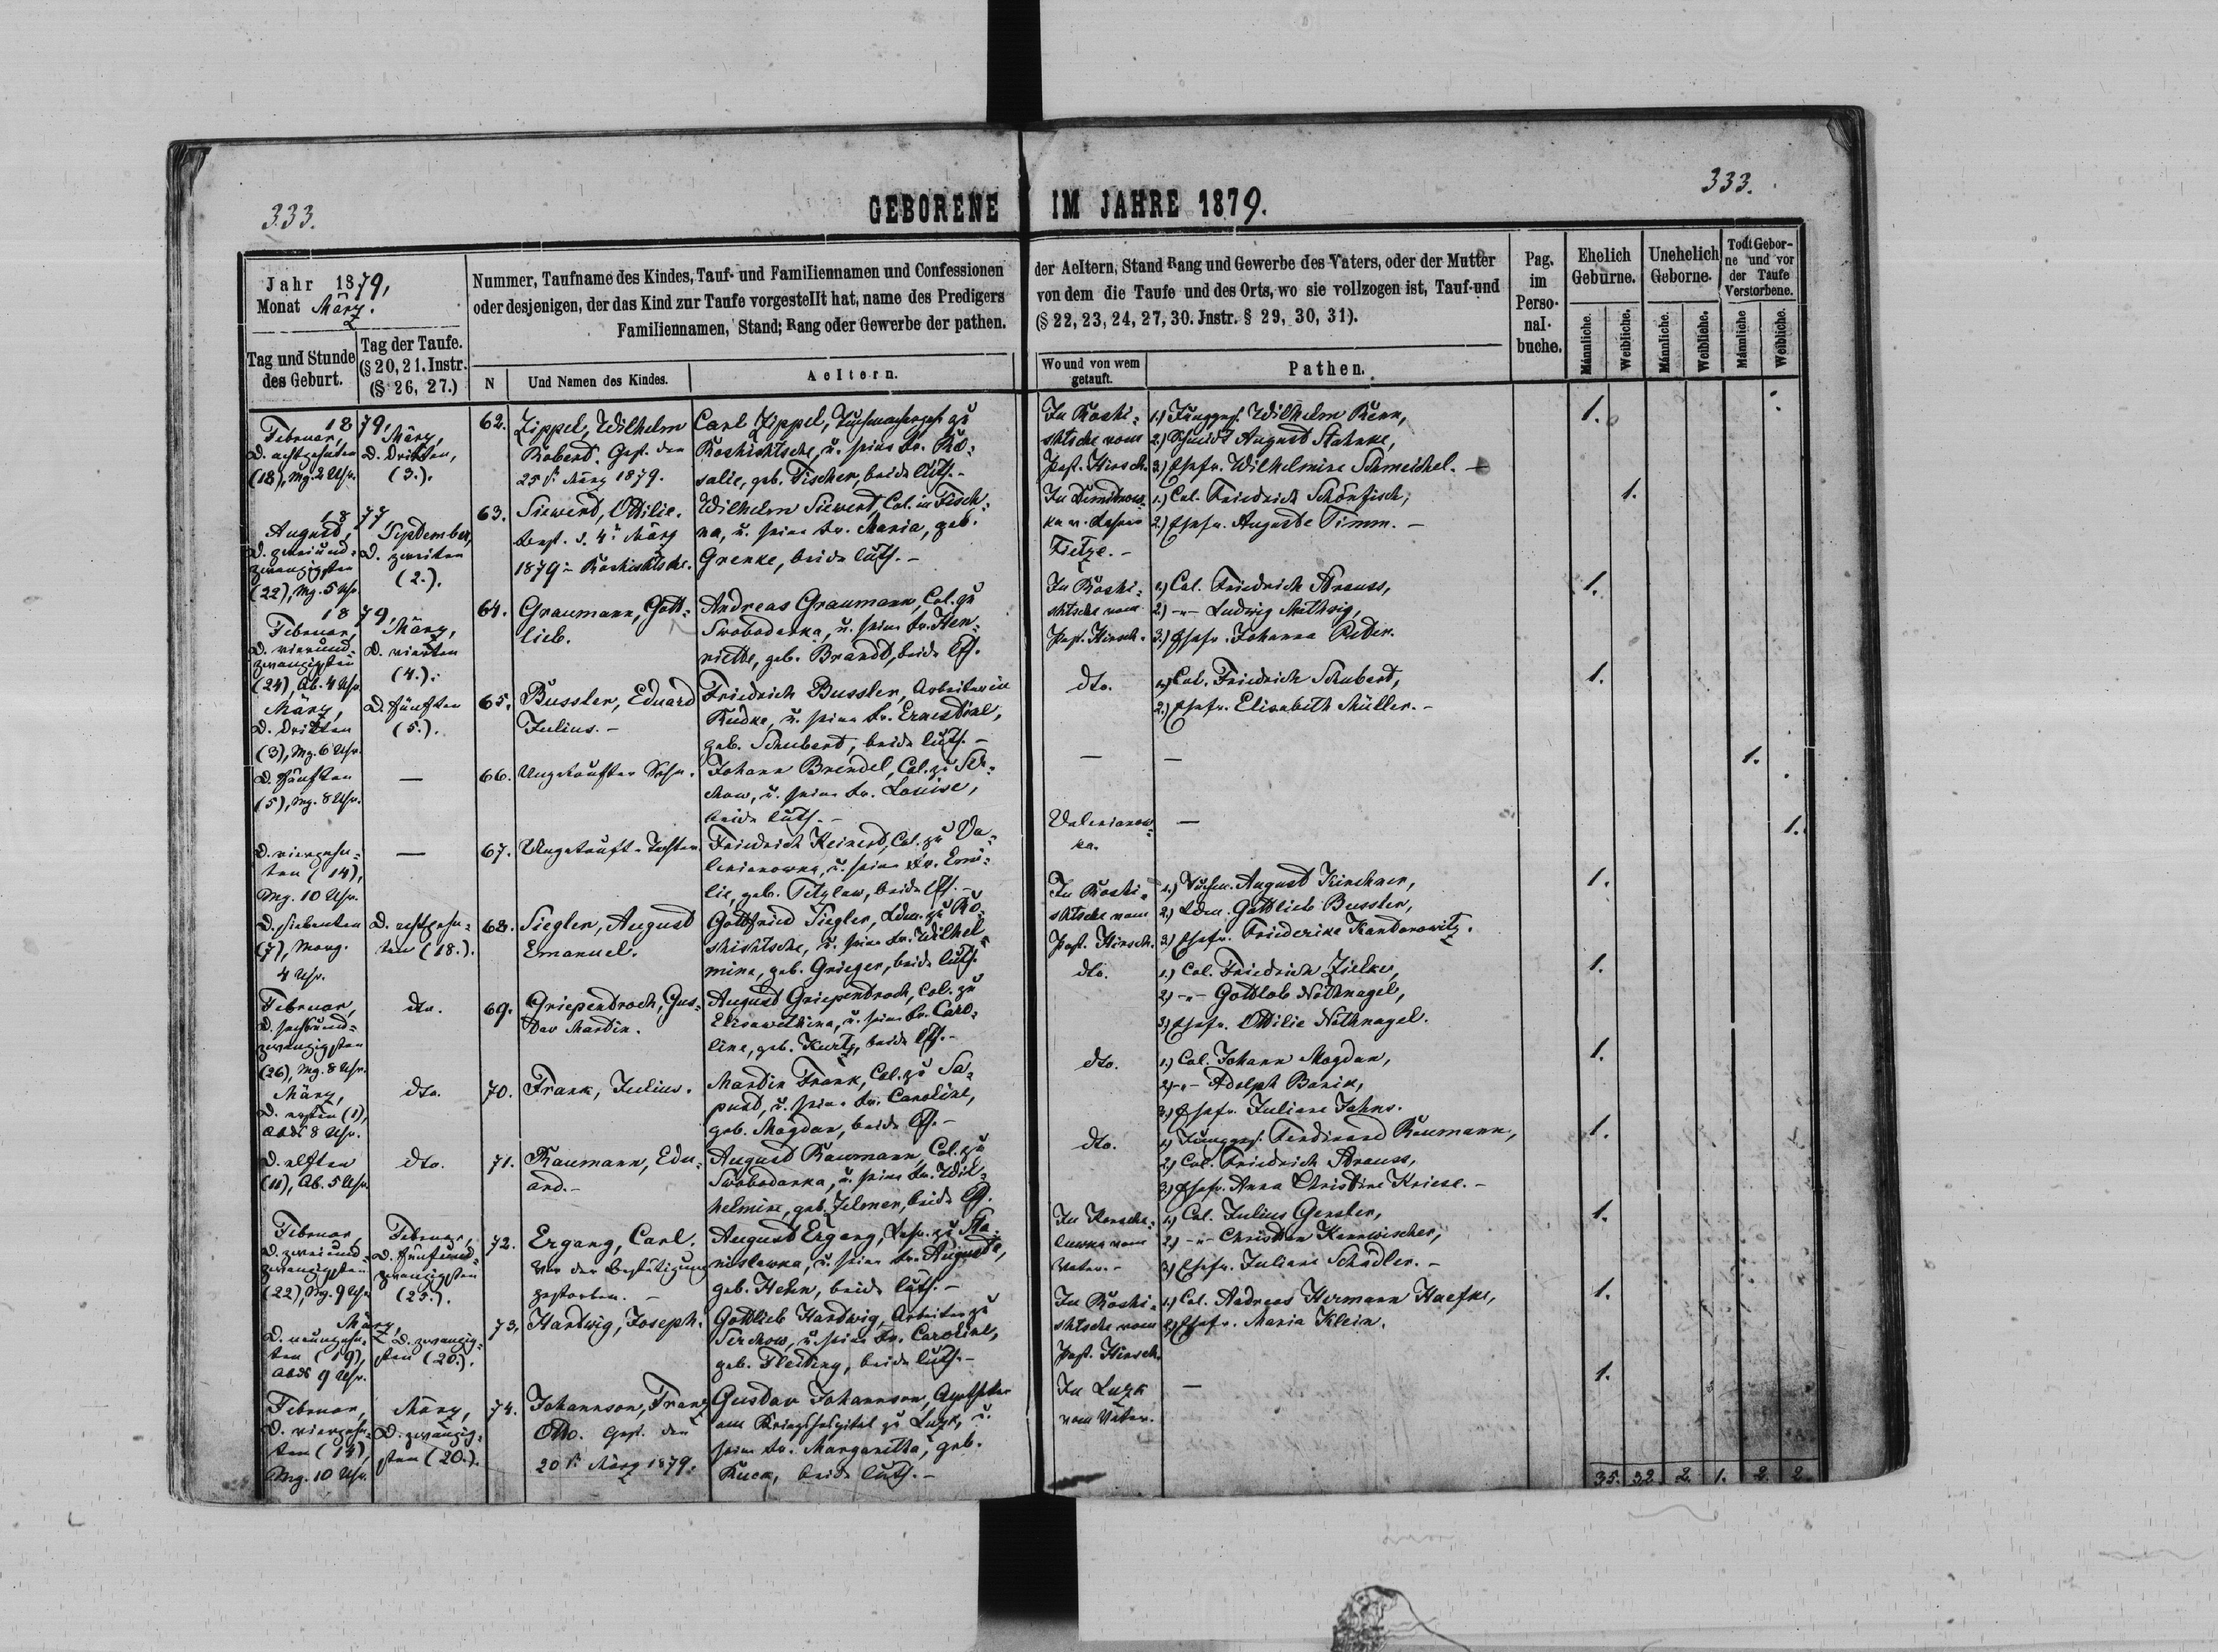 333.
GEBORENE IM JAHRE 1879.
333.
Jahr 1879,
Monat März.
Tag und Stunde
des Geburt.
Tag der Taufe.
(§ 20, 21. Instr.
(§ 26, 27.)
Nummer, Taufname des Kindes, Tauf- und Familiennamen und Confessionen
oder desjenigen, der das Kind zur Taufe vorgestellt hat, name des Predigers
Familiennamen, Stand; Rang oder Gewerbe der pathen.
N
Und Namen des Kindes.
Aeltern.
der Aeltern, Stand Rang und Gewerbe des Vaters, oder der Mutter
von dem die Taufe und des Orts, wo sie vollzogen ist, Tauf-und
(§ 22, 23, 24, 27, 30. Jnstr. § 29, 30, 31).
Wo und von wem
getauft.
Pathen.
Pag.
im
Perso-
nal-
buche.
Ehelich
Geburne.
Unehelich
Geborne.
Todt Gebor-
ne und vor
der Taufe
Verstorbene.
Männliche.
Weibliche.
Männliche.
Weibliche.
Männliche
Weibliche.
1879,
Februar,
D. achtzehnten
(18), Mg. 2 Uhr.
März,
D. dritten,
(3.).
62.
Zippel, Wilhelm
Robert. Gest. den
25t. März 1879.
Carl Zippel, Tuchmachergesl. zu
Roshischtsche, u. seine Fr. Ro-
salie, geb. Fischer, beide luth. –
In Roshi-
shtsche vom
Past. Hirsch.
1.) Jünggs. Wilhelm Renn,
2.) Schmidt August Stahnke,
3.) Ehefr. Wilhelmine Schmeichel. –
1.
1877,
August,
D. zweiund-
zwanzigsten
(22), Mg. 5 Uhr
September,
D. zweiten
(2.).
63.
Siewert, Ottilie.
Best. d. 4. März
1879 in Roshishtsche.
Wilhelm Siewert, Col. in Tisch-
na, u. seine Fr. Maria, geb.
Grenke, beide luth. –
In Dimidrow-
ka v. Lehrer
Tietze. –
1.) Col. Friedrich Schönfisch,
2.) Ehefr. Auguste Timm. –
1.
1879,
Februar,
D. vierund-
zwanzigsten
(24), Ab. 4 Uhr.
März,
D. vierten
(4.).
64.
Graumann, Gott-
lieb.
Andreas Graumann, Col. zu
Swobodarka, u. seine Fr. Hen-
riette, geb. Brandt, beide lth.
In Roshi-
shtsche vom
Past. Hirsch.
1.) Col. Friedrich Strauss,
2.) -"- Ludwig
3.) Ehefr. Johanna Reder.
1.
März,
D. dritten
(3), Mg. 6 Uhr.
D. fünften
(5.).
65.
Bussler, Eduard
Julius. –
Friedrich Bussler, Arbeiter in
Rudka, u. seine Fr. Ernestine,
geb. Schubert, beide luth. –
dto.
1.) Col. Friedrich Schubert,
2.) Ehefr. Elisabeth Müller. –
1.
D. fünften
(5), Mg. 8 Uhr.
—
66.
Ungetaufter Sohn.
Johann Brendel, Col. zu Ser-
chow, u. seine Fr. Louise,
beide luth. –
—
—
1.
D. vierzehn-
ten (14),
Mg. 10 Uhr.
—
67.
Ungetauft. Tochter
Friedrich Reinert, Col. zu Va-
lerianowka, u. seine Fr. Emi-
lie, geb. Tetzlaw, beide lth. –
Valerianow-
ka.
—
1.
D. siebenten
(7), Morg.
4 Uhr.
D. achtzehn-
ten (18.).
68.
Siegler, August
Emanuel.
Gottfried Siegler, Ldm. zu Ro-
shishtsche, u. seine Fr. Wilhel-
mine, geb. Grieger, beide luth.
In Roshi-
shtsche vom
Past. Hirsch.
1.) August Kirschner,
2.) Ldm. Gottlieb Bussler,
3.) Ehefr. Friederike Kandorowitz.
1.
Februar,
D. sechsund-
zwanzigsten
(26), Mg. 8 Uhr.
dto.
69.
Griependroch, Gus-
tav Martin.
August Griependroch, Col. zu
Elisawethina, u. seine Fr. Caro-
line, geb. Kurtz, beide lth. –
dto.
1.) Col. Friedrich Zielke,
2.) -"- Gottlob Nothnagel,
3.) Ehefr. Ottilie Nothnagel.
1.
März,
D. ersten (1),
Abds 8 Uhr.
dto.
70.
Frank, Julius.
Martin Frank, Col. zu Sa-
pust, u. seine Fr. Caroline,
geb. Magdan, beide lth. –
dto.
1.) Col. Johann Magdan,
2.) -"- Adolph Banik,
3.) Ehefr. Juliane Jahns.
1.
D. elften
(11), Ab. 5 Uhr.
dto.
71.
Raumann, Edu-
ard. –
August Raumann, Col. zu
Swobodarka, u. seine Fr. Wil-
helmine, geb. Zelmer, beide lth.
dto.
1.) Jünggs. Ferdinand Raumann,
2.) Col. Friedrich Strauss,
3.) Ehefr. Anna Christine Kriese. –
1.
Februar,
D. zweiund-
zwanzigsten
(22), Mg. 9 Uhr
Februar,
D. fünfund-
zwanzigsten
(25.).
72.
Ergang, Carl.
Vor der Bestätigung
gestorben. –
August Ergang, Lehr. zu Sta-
nislawka, u. seine Fr. Auguste,
geb. Hehn, beide luth. –
In
luwka vom
Vater. –
1.) Col. Julius Gerster,
2.) -"- Christian Kannwischer,
3.) Ehefr. Juliane Schadler. –
1.
März,
D. neunzehn-
ten (19),
Abds 9 Uhr.
D. zwanzig-
sten (20.).
73.
Hartwig, Joseph.
Gottlieb Hartwig, Arbeiter zu
Serchow, u. seine Fr. Caroline,
geb. Fleiding, beide luth. –
In Roshi-
shtsche vom
Past. Hirsch.
1.) Col. Andreas Hermann Haefke,
2.) Ehefr. Maria Klein.
1.
Februar,
D. vierzehn-
ten (14),
Mg. 10 Uhr.
März,
D. zwanzig-
sten (20.).
74.
Johannson, Franz
Otto. Gest. den
20t. März 1879.
Gustav Johannson, Apotheker
am Kriegshospital zu Luzk, u.
seine Fr. Margaritha, geb.
Ruca, beide luth. –
In Luzk
vom Vater.
—
1.
35. 32. 2. 1. 2. 2